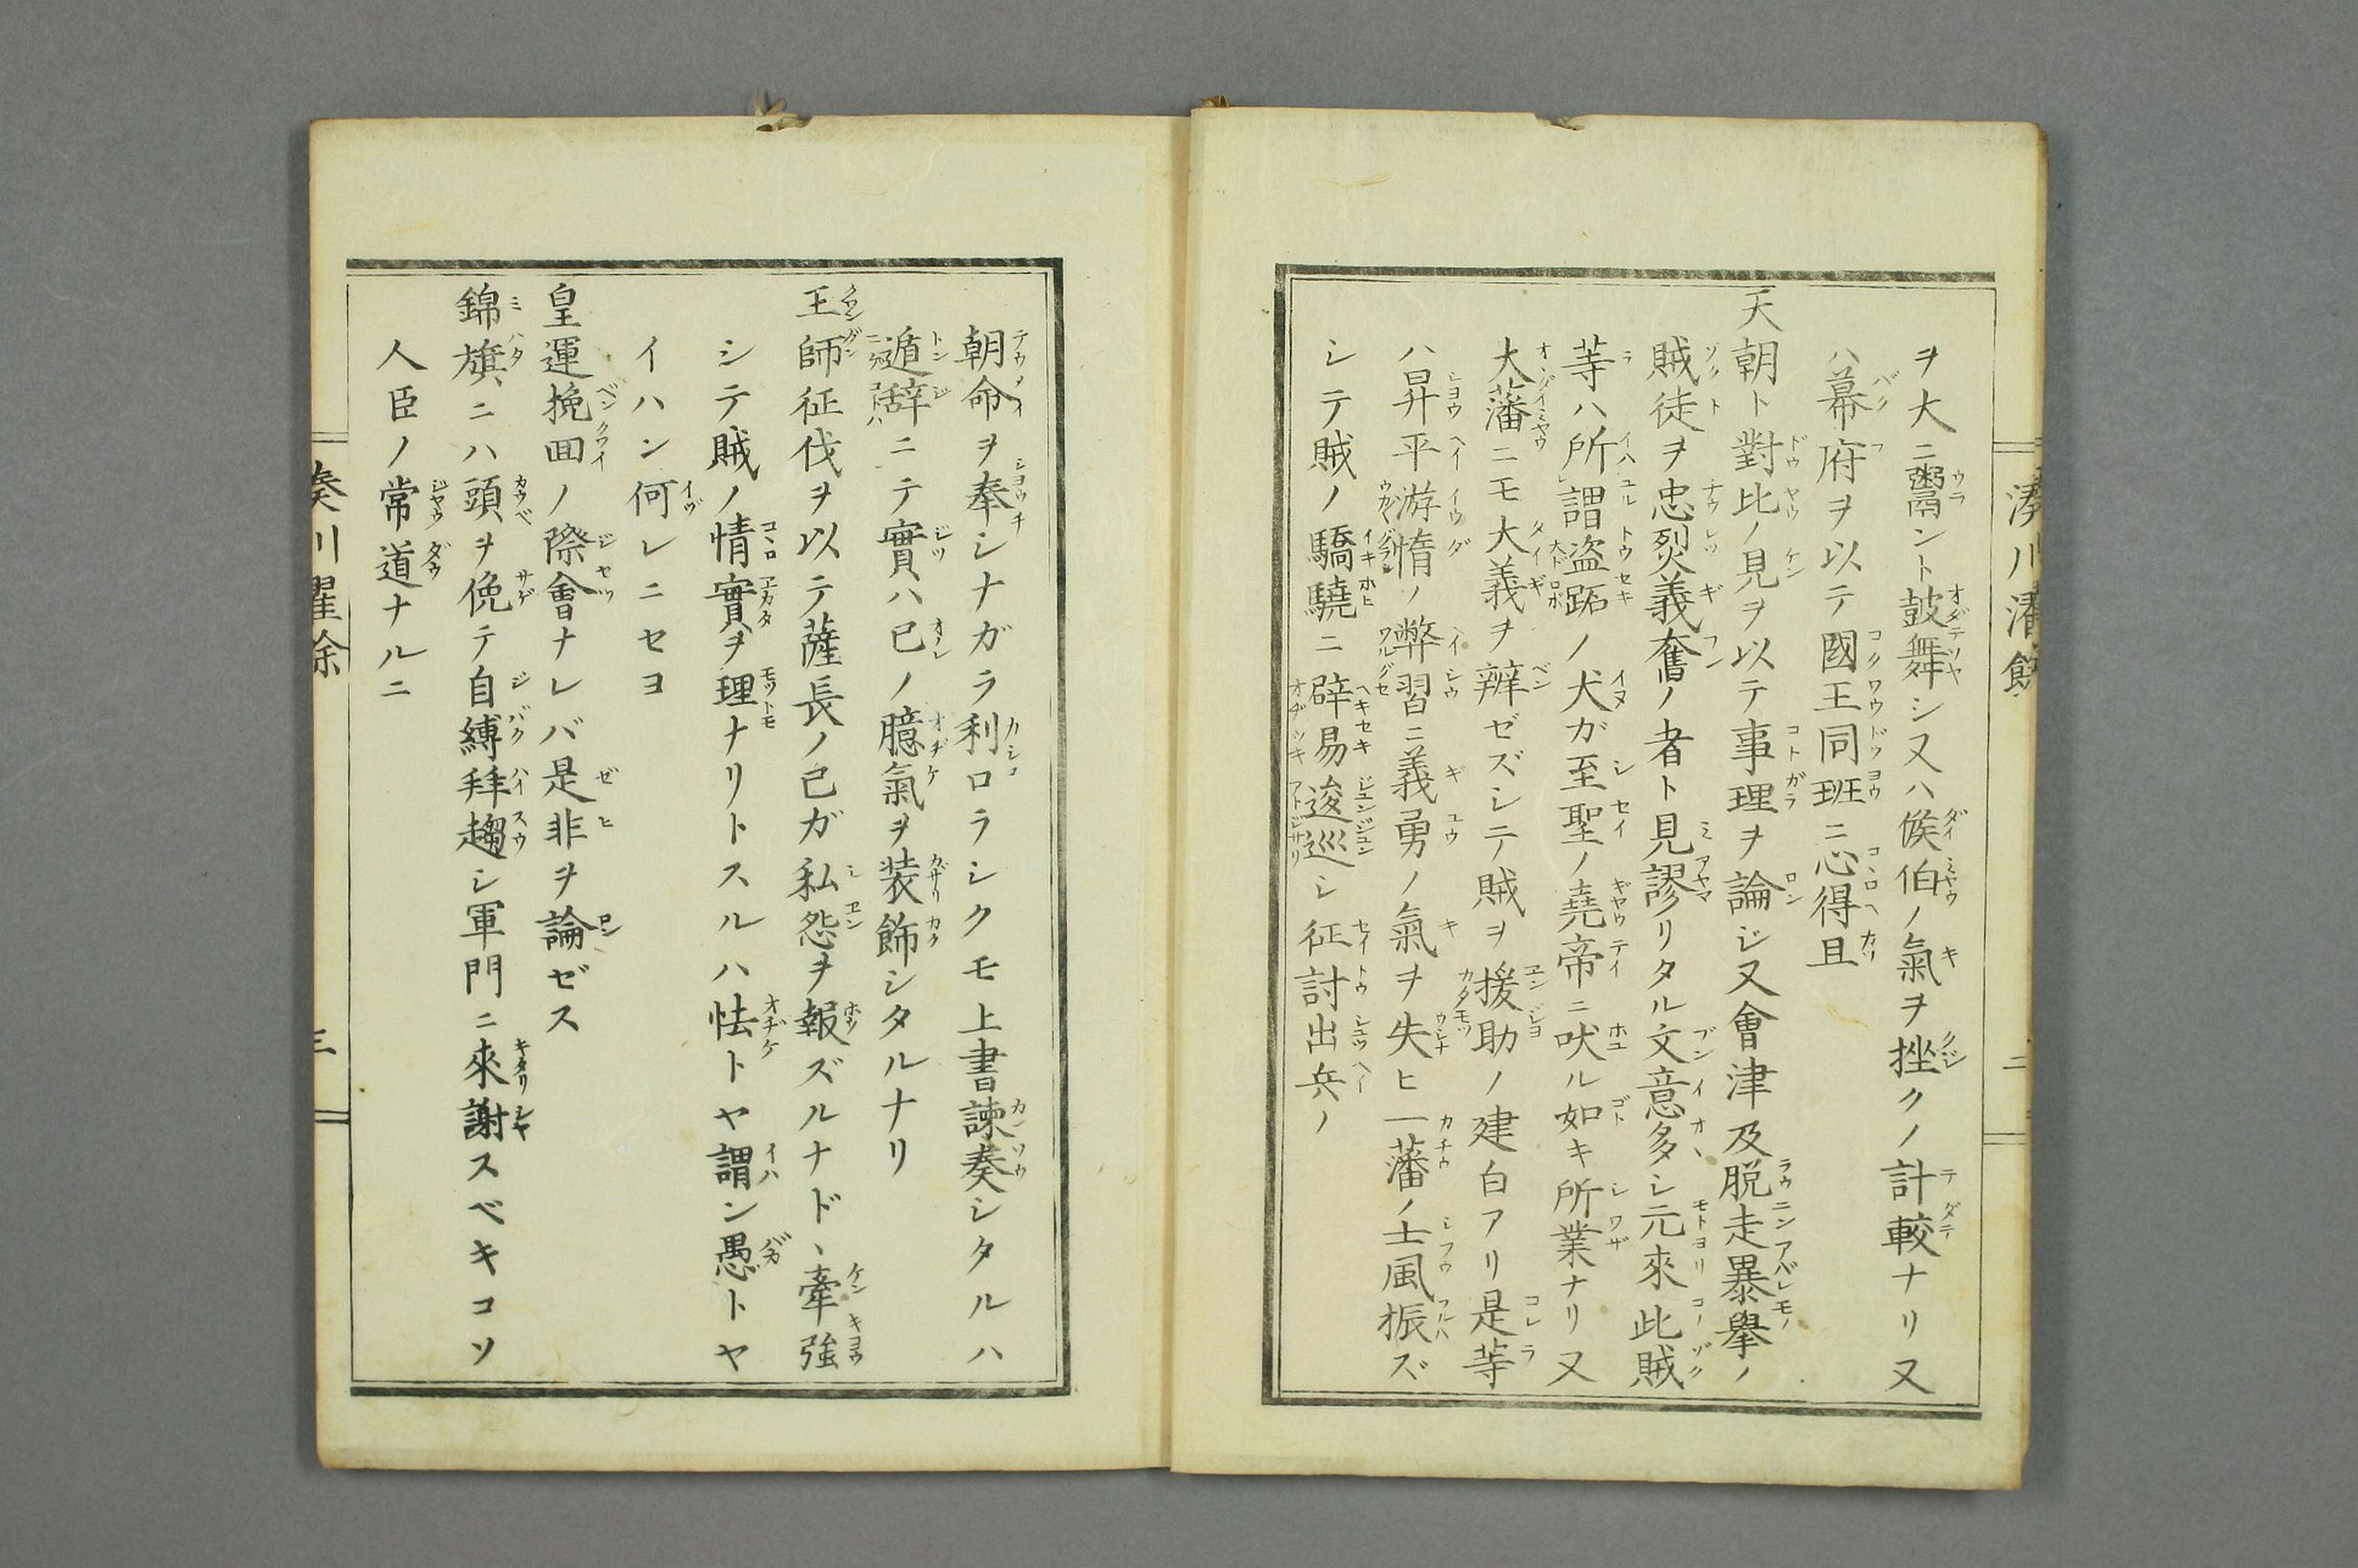 ヲ大ニ鬻ント鼓舞シ又ハ候伯ノ氣ヲ挫クノ計較ナリ又
ハ幕府ヲ以テ國王同班ニ心得且
天朝ト對比ノ見ヲ以テ事理ヲ論ジ又會津及脱走暴擧ノ
賊徒ヲ忠烈義奮ノ者ト見謬リタル文意多シ元來此賊
等ハ所謂盗跖ノ犬ガ至聖ノ堯帝ニ吠ル如キ所業ナリ又
大藩ニモ大義ヲ辨ゼズシテ賊ヲ援助ノ建白アリ是等
ハ昇平游惰ノ弊習ニ義勇ノ氣ヲ失ヒ一藩ノ士風振ズ
シテ賊ノ驕驍ニ辟易逡巡シ征討出兵ノ
朝命ヲ奉シナガラ利口ラシクモ上書諫奏シタルハ
遁辞ニテ實ハ己ノ臆氣ヲ装飾シタルナリ
王師征伐ヲ以テ薩長ノ己ガ私怨ヲ報ズルナド、牽強
シテ賊ノ情實ヲ理ナリトスルハ怯トヤ謂ン愚トヤ
イハン何レニセヨ
皇運挽回ノ際會ナレバ是非ヲ論ゼス
錦旗ニハ頭ヲ俛テ自縛拜趨シ軍門ニ來謝スベキコソ
人臣ノ常道ナルニ
二
三